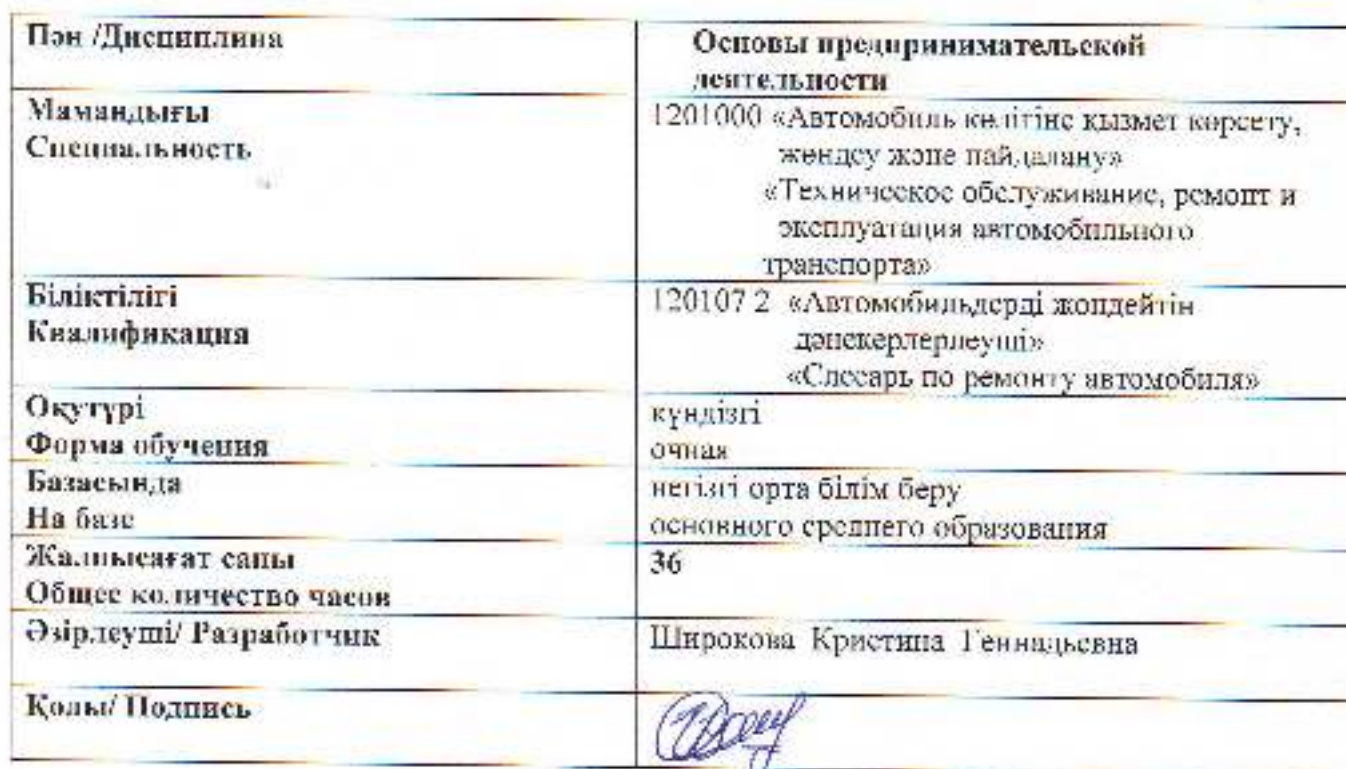 Пән /Дисциплина
Основы предпринимательской
деятельности
Мамандығы
Специальность
1201000 «Автомобиль көлігіне қызмет көрсету,
жөндеу және пайдалану»
«Техническое обслуживание, ремонт и
эксплуатация автомобильного
транспорта»
Біліктілігі
Квалификация
120107 2 «Автомобильдерді жөндейтін
дәнекерлерлеуші»
«Слесарь по ремонту автомобиля»
Оқутүрі
Форма обучения
күндізгі
очная
Базасында
На базе
негізгі орта білім беру
основного среднего образования
Жалпысағат саны
Общее количество часов
36
Әзірлеуші/ Разработчик
Широкова Кристина Геннадьевна
Қолы/ Подпись